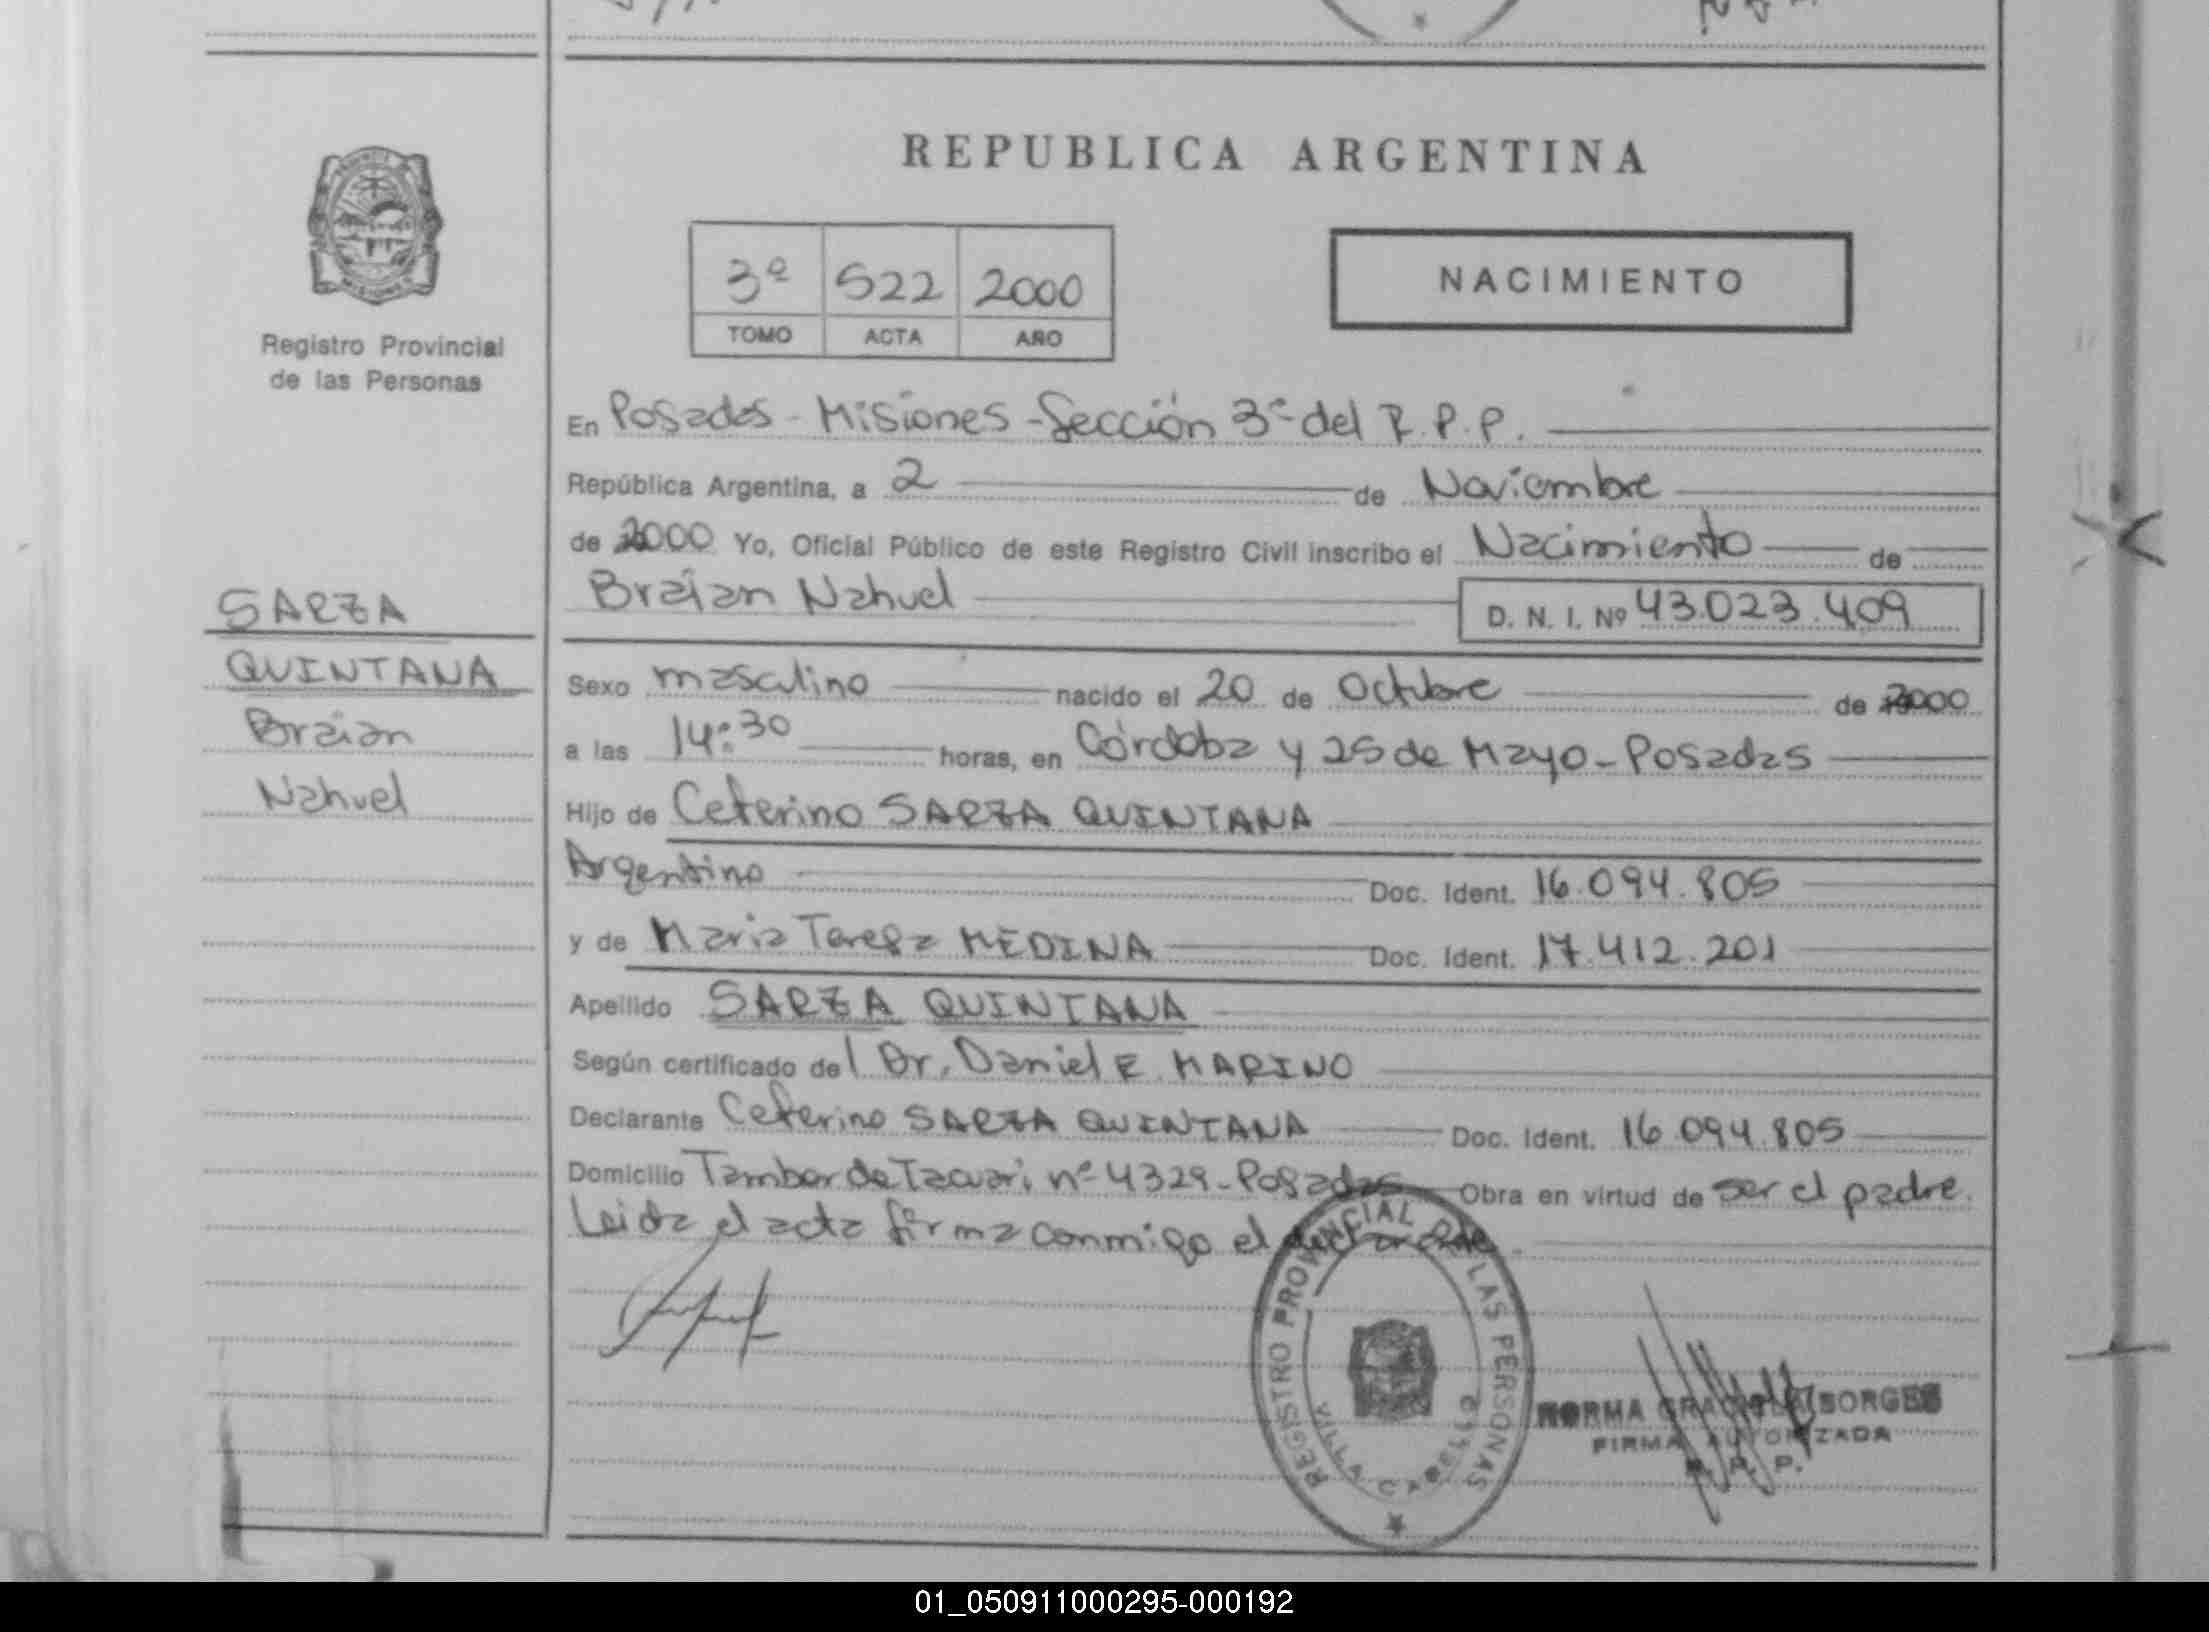 REPUBLICA ARGENTINA
3º 522 2000
TOMO ACTA AÑO
NACIMIENTO
Registro Provincial
de las Personas
MISIONES
En Posadas - Misiones - Sección 3ª del R.P.P.
República Argentina, a 2 de Noviembre
de 2000 Yo, Oficial Público de este Registro Civil inscribo el Nacimiento de
Braian Nahuel D. N. I. Nº 43.023.409
SARZA
QUINTANA
Braian
Nahuel
Sexo masculino nacido el 20 de Octubre de 2000
a las 14:30 horas, en Córdoba y 25 de Mayo - Posadas
Hijo de Ceferino SARZA QUINTANA
Argentino Doc. Ident. 16.094.805
y de Maria Teresa MEDINA Doc. Ident. 17.412.201
Apellido SARZA QUINTANA
Según certificado del Dr. Daniel E. MARINO
Declarante Ceferino SARZA QUINTANA Doc. Ident. 16.094.805
Domicilio Tambor de Tacuari nº 4329 - Posadas Obra en virtud de ser el padre.
Leida el acta firma conmigo el declarante.
REGISTRO PROVINCIAL DE LAS PERSONAS
VILLA CABELLO
NORMA GRACIELA BORGES
FIRMA AUTORIZADA
R. P. P.
01_050911000295-000192